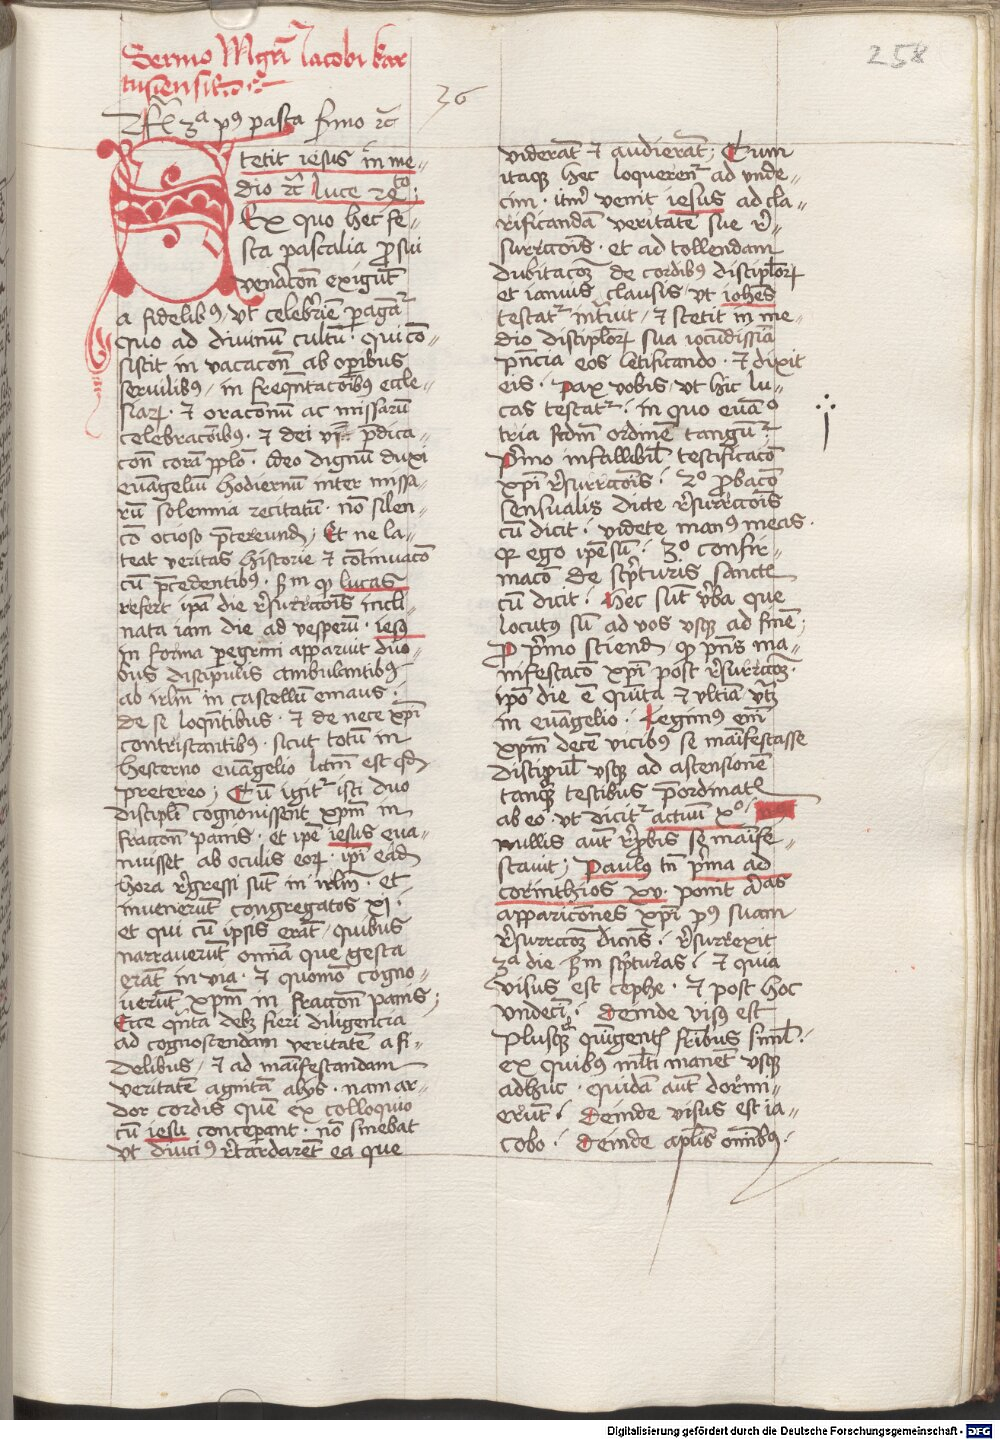 Sermo Mgri Iacobi kar
tusiensis
258
36
3ᵃ pꝰ pasca Sermo ꝛc̄
Stetit iesus in me-
dio ꝛc̄ luce
Ex quo hec fe-
sta pascalia pro sui
venacōn exigūt
a fidelibꝰ, vt celebriē pagāt
quo ad diuinum cultū · qui cō-
sistit in vacacōn ab opibus
seruilibꝰ, in freqntacōibus eccle-
siaꝝ · et oracōnū ac missarū
celebracōibꝰ · et dei pdica-
cōn corā pplo · ideo dignū duxi
euāgeliū hodiernū inter missa-
rū solemnia recitatū · nō silen-
cō ocioso ptereund, Et ne la-
teat veritas historie et cōtinuacō
cū pcedentibꝰ · lucas
refert ipā die rsurrcōis incli-
nata iam die ad vesperū · iesꝰ
in forma peregrini apparuit duo-
bus discipulis ambulantibꝰ
ab irlm in castellum emaus ·
de se loqntibus · et de nece xpī
contristantibꝰ · sicut totū in
hesterno euāgelio lctm est qd
pretereo; Cū igit isti duo
discipli cognouissent xpm in
fraccōn panis · et ipē iesus eua-
nuisset ab oculis eoꝝ · ipi eadē
hora rgressi sūt in irlm · et
inuenerūt congregatos xi ·
et qui cū ipsis erāt, quibus
narrauerūt omnia que gesta
erāt in via · et quomō cogno-
uerūt xpm in fraccōn panis;
Ecce qnta debꝫ fieri diligencia
ad cognoscendam veritatē a fi-
delibus, et ad maifestandam
veritatē agnitā alijs · nam ar-
dor cordis quē ex colloquio
cū iesu conceperant · nō sinebat
vt diuciꝰ rtardarēt ea que
viderāt et audierāt; Cum
itaqꝫ hec loquerent ad vnde-
cim · itm venit iesus ad cla-
rificandā veritatē sue r-
surrcōis · et ad tollendam
dubitacoꝫ de cordibꝰ discipuloꝝ
et ianuis clausis vt iohes
testat intuit, et stetit in me-
dio discipuloꝝ sua iocūdissiā
pncia eos letificando · et dixit
eis · Pax vobis, vt hic lu-
cas testat · in quo euāꝰ
tria scdm ordinē tangūt
Primo infallibil testificacō
xpi rsurrcōis · 2º probacō
sensualis dicte rsurrcōis
cū dicit · videte manꝰ meas ·
qꝫ ego ipē sū · 3º confir-
macō de scpturis sanct
cū dicit · Hec sūt vba que
locutus sū ad vos vsqꝫ ad finē;
Pro primo sciend qꝫ pnis ma-
nifestacō xpi post rsurrcōꝫ
ipō die ē quita et vltia vtꝫ
in euāgelio · Legimꝰ eni
xpm decē vicibꝰ se maifestasse
discipul vsqꝫ ad ascensionē
tanqꝫ testibus pordinat
ab eo · vt dicit actuū xº ·
nullis aut rprobis se maife-
stauit; Paulꝰ tn prima ad
corinthios xv · ponit
appariciones xpi pꝰ suam
rsurrcōꝫ dicēs · rsurrexit
3ᵃ die scpturas · et quia
visus est cephe · et post hoc
vndeci · deinde visꝰ est
plusqꝫ quigent fribus simul ·
ex quibus mlti manēt vsqꝫ
adhuc · quidā aut dormi-
erūt · Deinde visus est ia-
cobo · deinde aplis omibꝰ ·
Digitalisierung gefördert durch die Deutsche Forschungsgemeinschaft - DFG